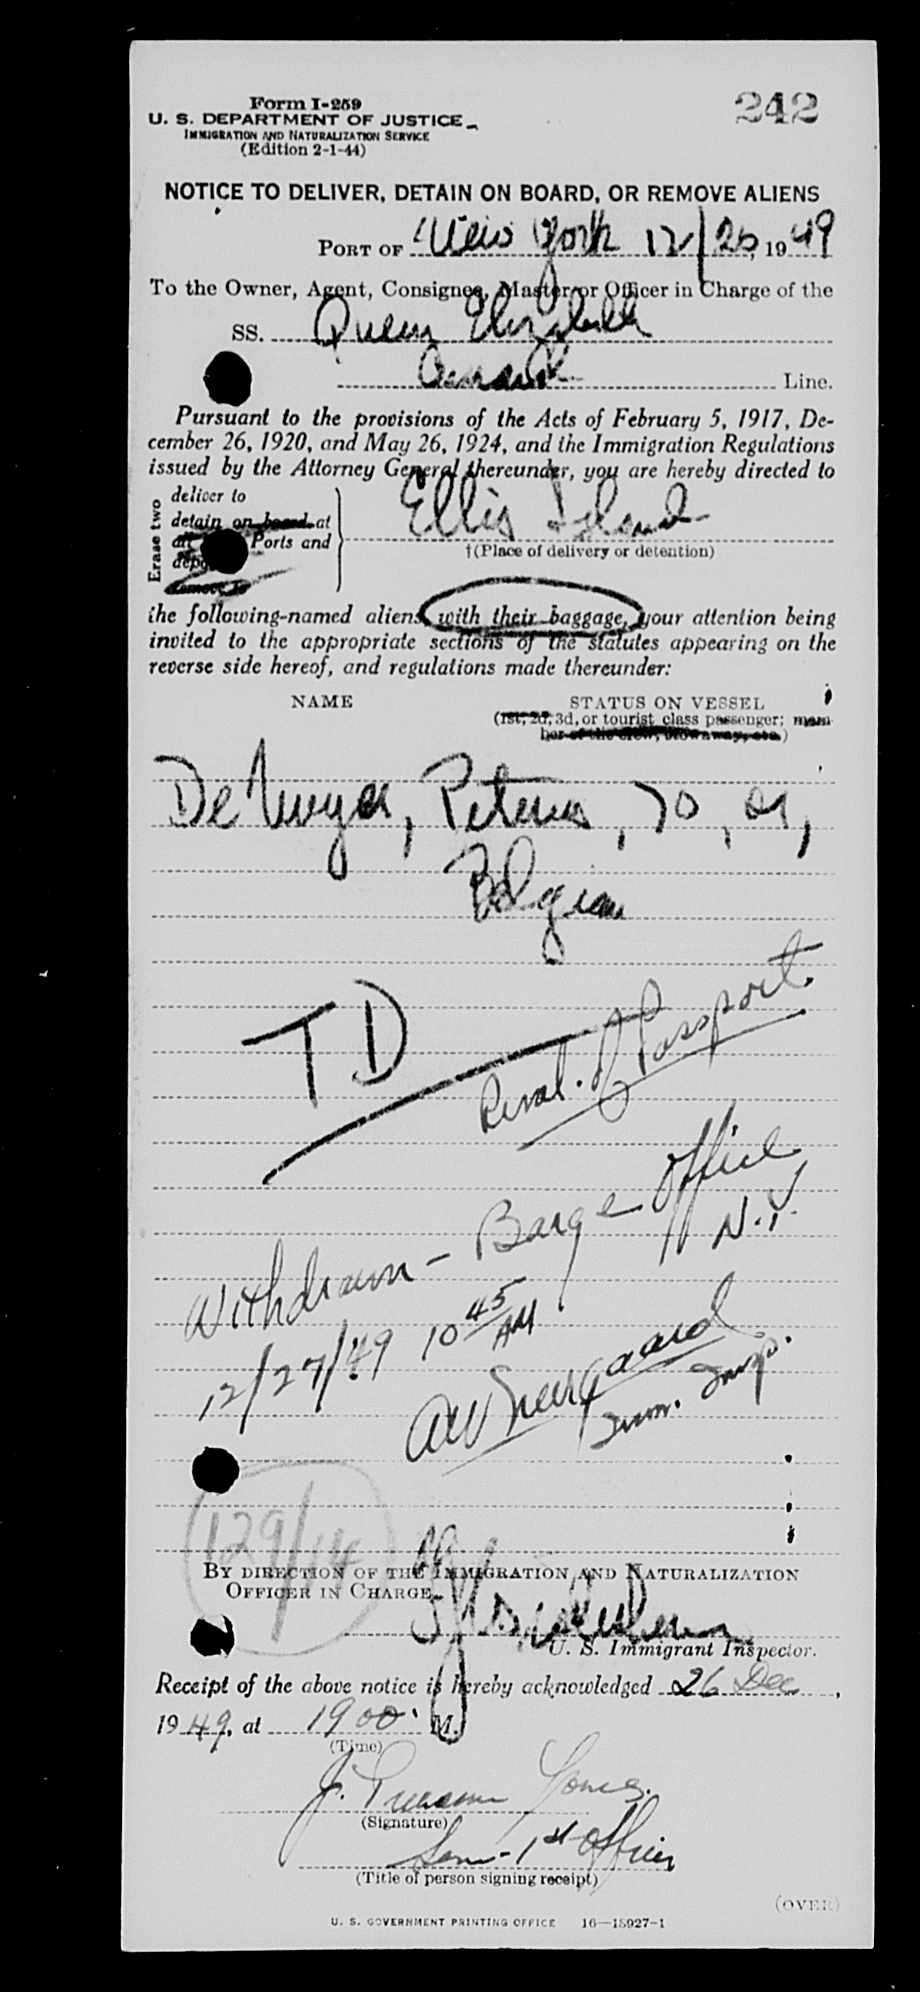 Form I-259
242
U. S. DEPARTMENT OF JUSTICE
IMMIGRATION AND NATURALIZATION SERVICE
(Edition 2-1-44)
NOTICE TO DELIVER, DETAIN ON BOARD, OR REMOVE ALIENS
PORT OF New York 12/26, 1949
To the Owner, Agent, Consignee, Master or Officer in Charge of the
SS. Queen Elizabeth
Cunard Line.
Pursuant to the provisions of the Acts of February 5, 1917, De-
cember 26, 1920, and May 26, 1924, and the Immigration Regulations
issued by the Attorney General thereunder, you are hereby directed to
Erase two
deliver to
detain on board at
all Ports and
remove to
Ellis Island
†(Place of delivery or detention)
the following-named aliens with their baggage, your attention being
invited to the appropriate sections of the statutes appearing on the
reverse side hereof, and regulations made thereunder:
NAME STATUS ON VESSEL
(1st, 2d, 3d, or tourist class passenger; mem-
ber of the crew, stowaway, etc.)
Petrus, 70,
Belgian
TD
of Passport
Withdrawn - Barge Office
N.Y.
12/27/49 10 45 AM
Imm. Insp.
129/14
BY DIRECTION OF THE IMMIGRATION AND NATURALIZATION
OFFICER IN CHARGE
U. S. Immigrant Inspector.
Receipt of the above notice is hereby acknowledged 26 Dec,
1949, at 1900 M.
(Time)
J. Jones.
(Signature)
1st Officer
(Title of person signing receipt)
(OVER)
U. S. GOVERNMENT PRINTING OFFICE 16—15927-1